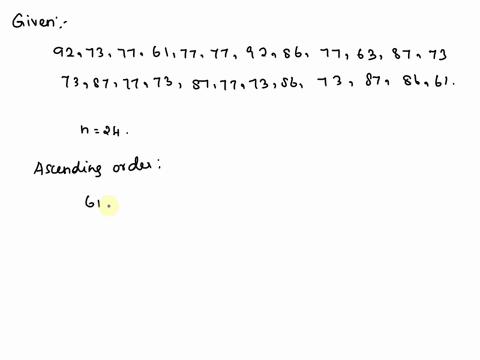 Given:-
92, 73, 77, 61, 77, 77, 92, 86, 77, 63, 87, 73
73, 87, 77, 73, 87, 77, 73, 86, 73, 87, 86, 61.
n = 24.
Ascending order:
61,